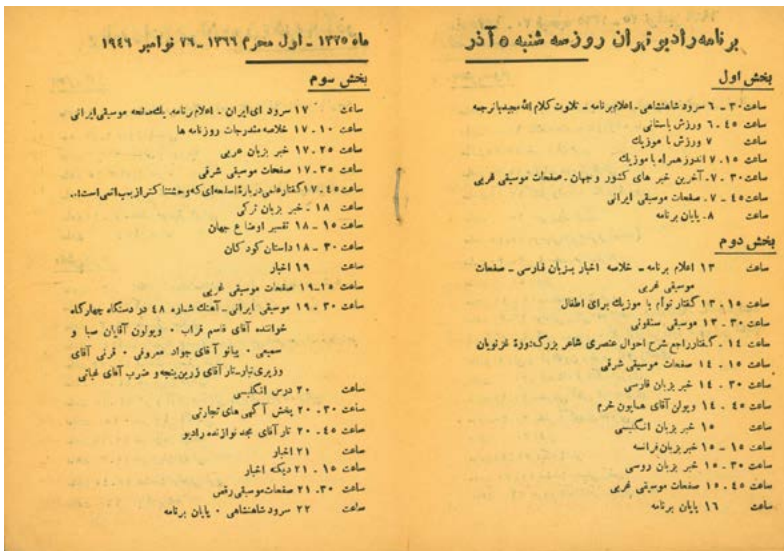 برنامه رادیو تهران روز سه شنبه ۵ آذر
بخش اول
ساعت ۳۰ ـ ۶ سرود شاهنشاهی ـ اعلام برنامه ـ تلاوت کلام الله مجید با ترجمه
ساعت ۴۵ ـ ۶ ورزش باستانی
ساعت ۷ ورزش با موزیك
ساعت ۱۵ ـ ۷ اندرز همراه با موزیك
ساعت ۳۰ ـ ۷ ـ آخرین خبر های کشور و جهان ـ صفحات موسیقی غربی
ساعت ۴۵ ـ ۷ ـ صفحات موسیقی ایرانی
ساعت ۸ ـ پایان برنامه
بخش دوم
ساعت ۱۳ اعلام برنامه ـ خلاصه اخبار بزبان فارسی ـ صفحات
موسیقی غربی
ساعت ۱۵ ـ ۱۳ گفتار توأم با موزیك برای اطفال
ساعت ۳۰ ـ ۱۳ موسیقی سنفونی
ساعت ۱۴ ـ گفتار راجع شرح احوال عنصری شاعر بزرگ دورۀ غزنویان
ساعت ۱۵ ـ ۱۴ صفحات موسیقی شرقی
ساعت ۳۰ ـ ۱۴ خبر بزبان فارسی
ساعت ۴۵ ـ ۱۴ ویولن آقای همایون خرم
ساعت ۱۵ خبر بزبان انگلیسی
ساعت ۱۵ ـ ۱۵ خبر بزبان فرانسه
ساعت ۳۰ ـ ۱۵ خبر بزبان روسی
ساعت ۴۵ ـ ۱۵ صفحات موسیقی غربی
ساعت ۱۶ پایان برنامه
ماه ۱۳۲۵ ـ اول محرم ۱۳۶۶ ـ ۲۶ نوامبر ۱۹۴۶
بخش سوم
ساعت ۱۷ سرود ای ایران ـ اعلام برنامه ـ یك صفحه موسیقی ایرانی
ساعت ۱۰ ـ ۱۷ خلاصه مندرجات روزنامه ها
ساعت ۲۵ ـ ۱۷ خبر بزبان عربی
ساعت ۳۵ ـ ۱۷ صفحات موسیقی شرقی
ساعت ۴۵ ـ ۱۷ گفتار علمی دربارۀ اسلحه ای که وحشتناکتر از بمب اتمی است!..
ساعت ۱۸ ـ خبر بزبان ترکی
ساعت ۱۵ ـ ۱۸ تفسیر اوضاع جهان
ساعت ۳۰ ـ ۱۸ داستان کودکان
ساعت ۱۹ اخبار
ساعت ۱۵ ـ ۱۹ صفحات موسیقی غربی
ساعت ۳۰ ـ ۱۹ موسیقی ایرانی ـ آهنك شماره ۴۸ در دستگاه چهارگاه
خواننده آقای قاسم قراب ٠ ویولون آقایان صبا و
سمیعی ٠ پیانو آقای جواد معروفی ٠ قرنی آقای
وزیری تبار ـ تار آقای زرین پنجه و ضرب آقای غیاثی
ساعت ۲۰ درس انگلیسی
ساعت ۳۰ ـ ۲۰ پخش آگهی های تجارتی
ساعت ۴۵ ـ ۲۰ تار آقای مجد نوازنده رادیو
ساعت ۲۱ اخبار
ساعت ۱۵ ـ ۲۱ دیکته اخبار
ساعت ۳۰ ـ ۲۱ صفحات موسیقی رقص
ساعت ۲۲ سرود شاهنشاهی ٠ پایان برنامه